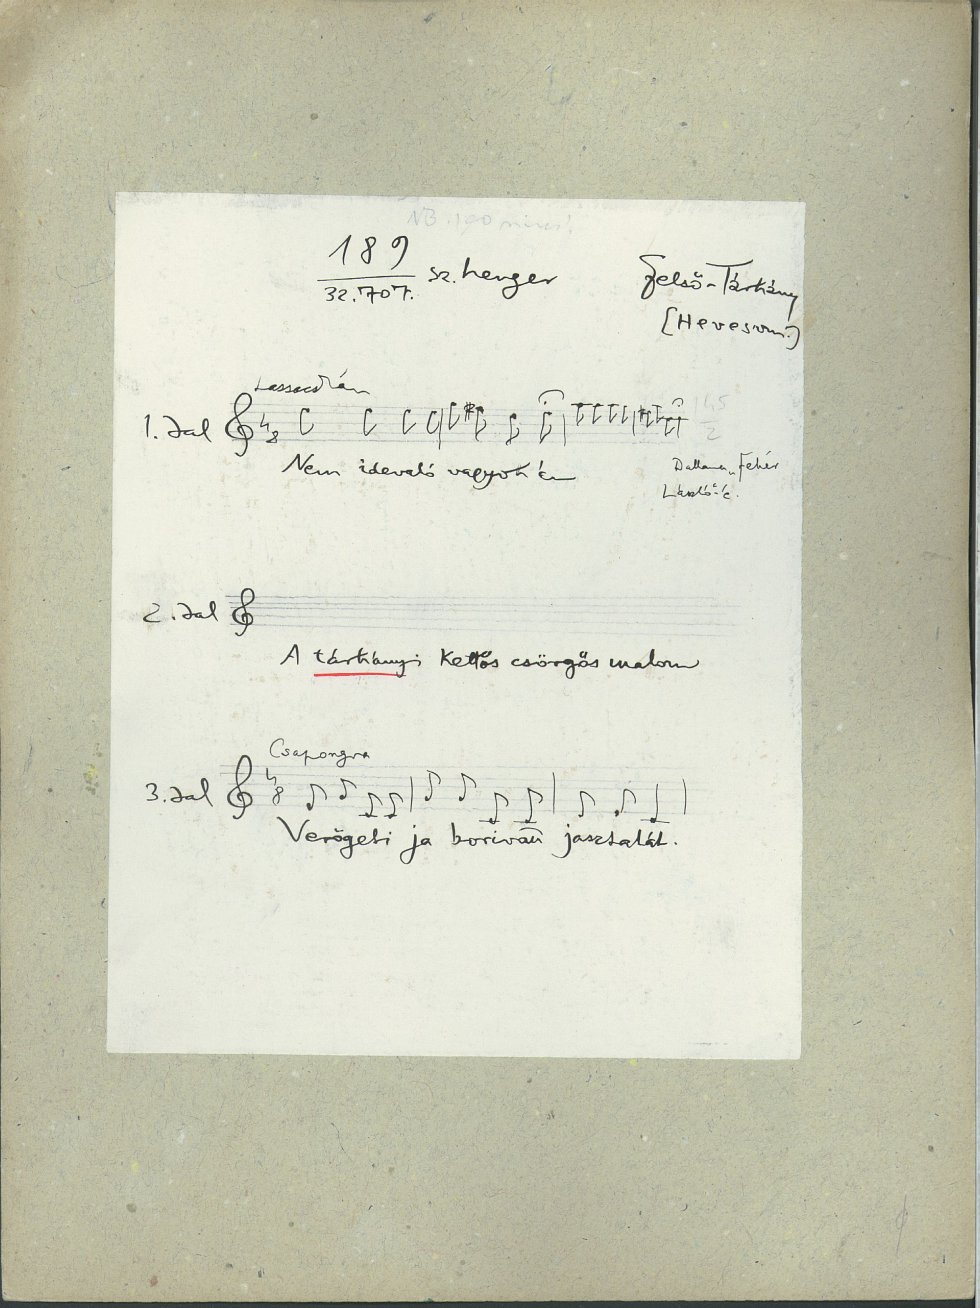 NB. 190 nincs!
189
32.707. sz. henger
Felső-Tárkány
(Hevesvm.)
Lassacskán
1. dal 4/8
Nem idevaló vagyok én
Dallama „Fehér
László”-é.
2. dal
A tárkányi Kettős csörgős malom
Csapongva
3. dal 4/8
Verögeti ja borivau jasztalát.